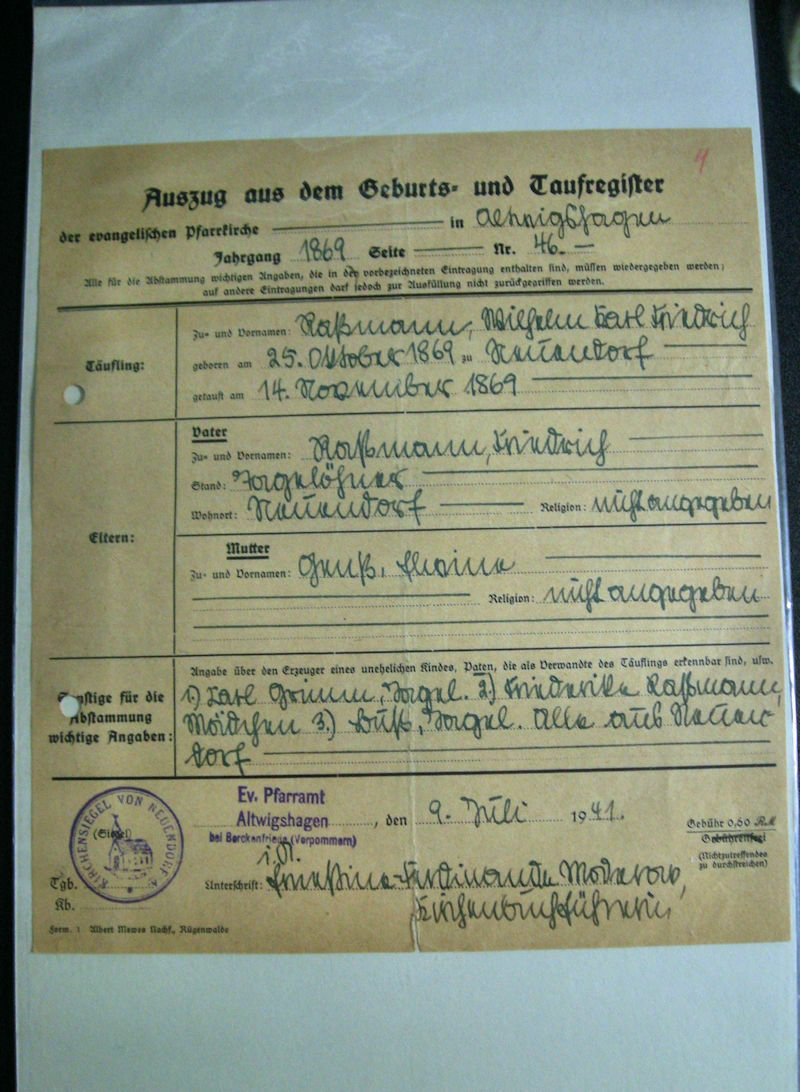 4
Auszug aus dem Geburts- und Taufregister
der evangelischen Pfarrkirche in Altwigshagen
Jahrgang 1869 Seite Nr. 46.
Alle für die Abstammung wichtigen Angaben, die in der vorbezeichneten Eintragung enthalten sind, müssen wiedergegeben werden;
auf andere Eintragungen darf jedoch zur Ausfüllung nicht zurückgegriffen werden.
Täufling:
Zu- und Vornamen: Raßmann, Wilhelm Karl Friedrich
geboren am 25. Oktober 1869 zu Neuendorf
getauft am 14. November 1869
Eltern:
Vater
Zu- und Vornamen: Raßmann, Friedrich
Stand: Tagelöhner
Wohnort: Neuendorf Religion: nicht angegeben
Mutter
Zu- und Vornamen:
Religion: nicht angegeben
Sonstige für die Abstammung wichtige Angaben:
Angabe über den Erzeuger eines unehelichen Kindes, Paten, die als Verwandte des Täuflings erkennbar sind, usw.
1.) Karl Grimm, Tagel. 2.) Friederike Raßmann,
Mädchen 3.) Tagel. Alle aus Neuen-
dorf
KIRCHENSIEGEL VON NEUENDORF
(Siegel)
Ev. Pfarramt
Altwigshagen, den 9. Juli 1941.
bei Borckenfriede (Vorpommern)
Gebühr 0,60 RM
Gebührenfrei
(Nichtzutreffendes
zu durchstreichen)
Tgb.
Kb.
i. A.
Unterschrift: Ernestine Ferdinande Moderow,
Kirchenbuchführerin
Form. 1 Albert Mewes Nachf., Rügenwalde